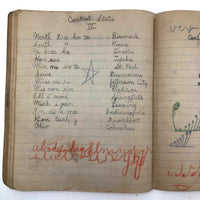 Central States
II
North Da ko ta Bismark
South " Pierre
Ne bras ka Lincoln
Kan sas Topeka
Min ne so ta St. Paul
Iowa Desmoines
Miss ou ri Jefferson City
Wis con sin Madison
Ill i nois Springfield
Mich i gan Lansing
In di an a Indianapolis
Ken tuck y Frankfort
Ohio Columbus
abcdefghijklmnopqr
stuvwxyz
very